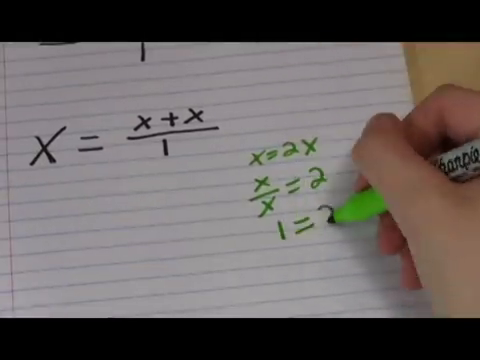 1
x = x + x / 1
x = 2x
x / x = 2
1 = 2
Sharpie